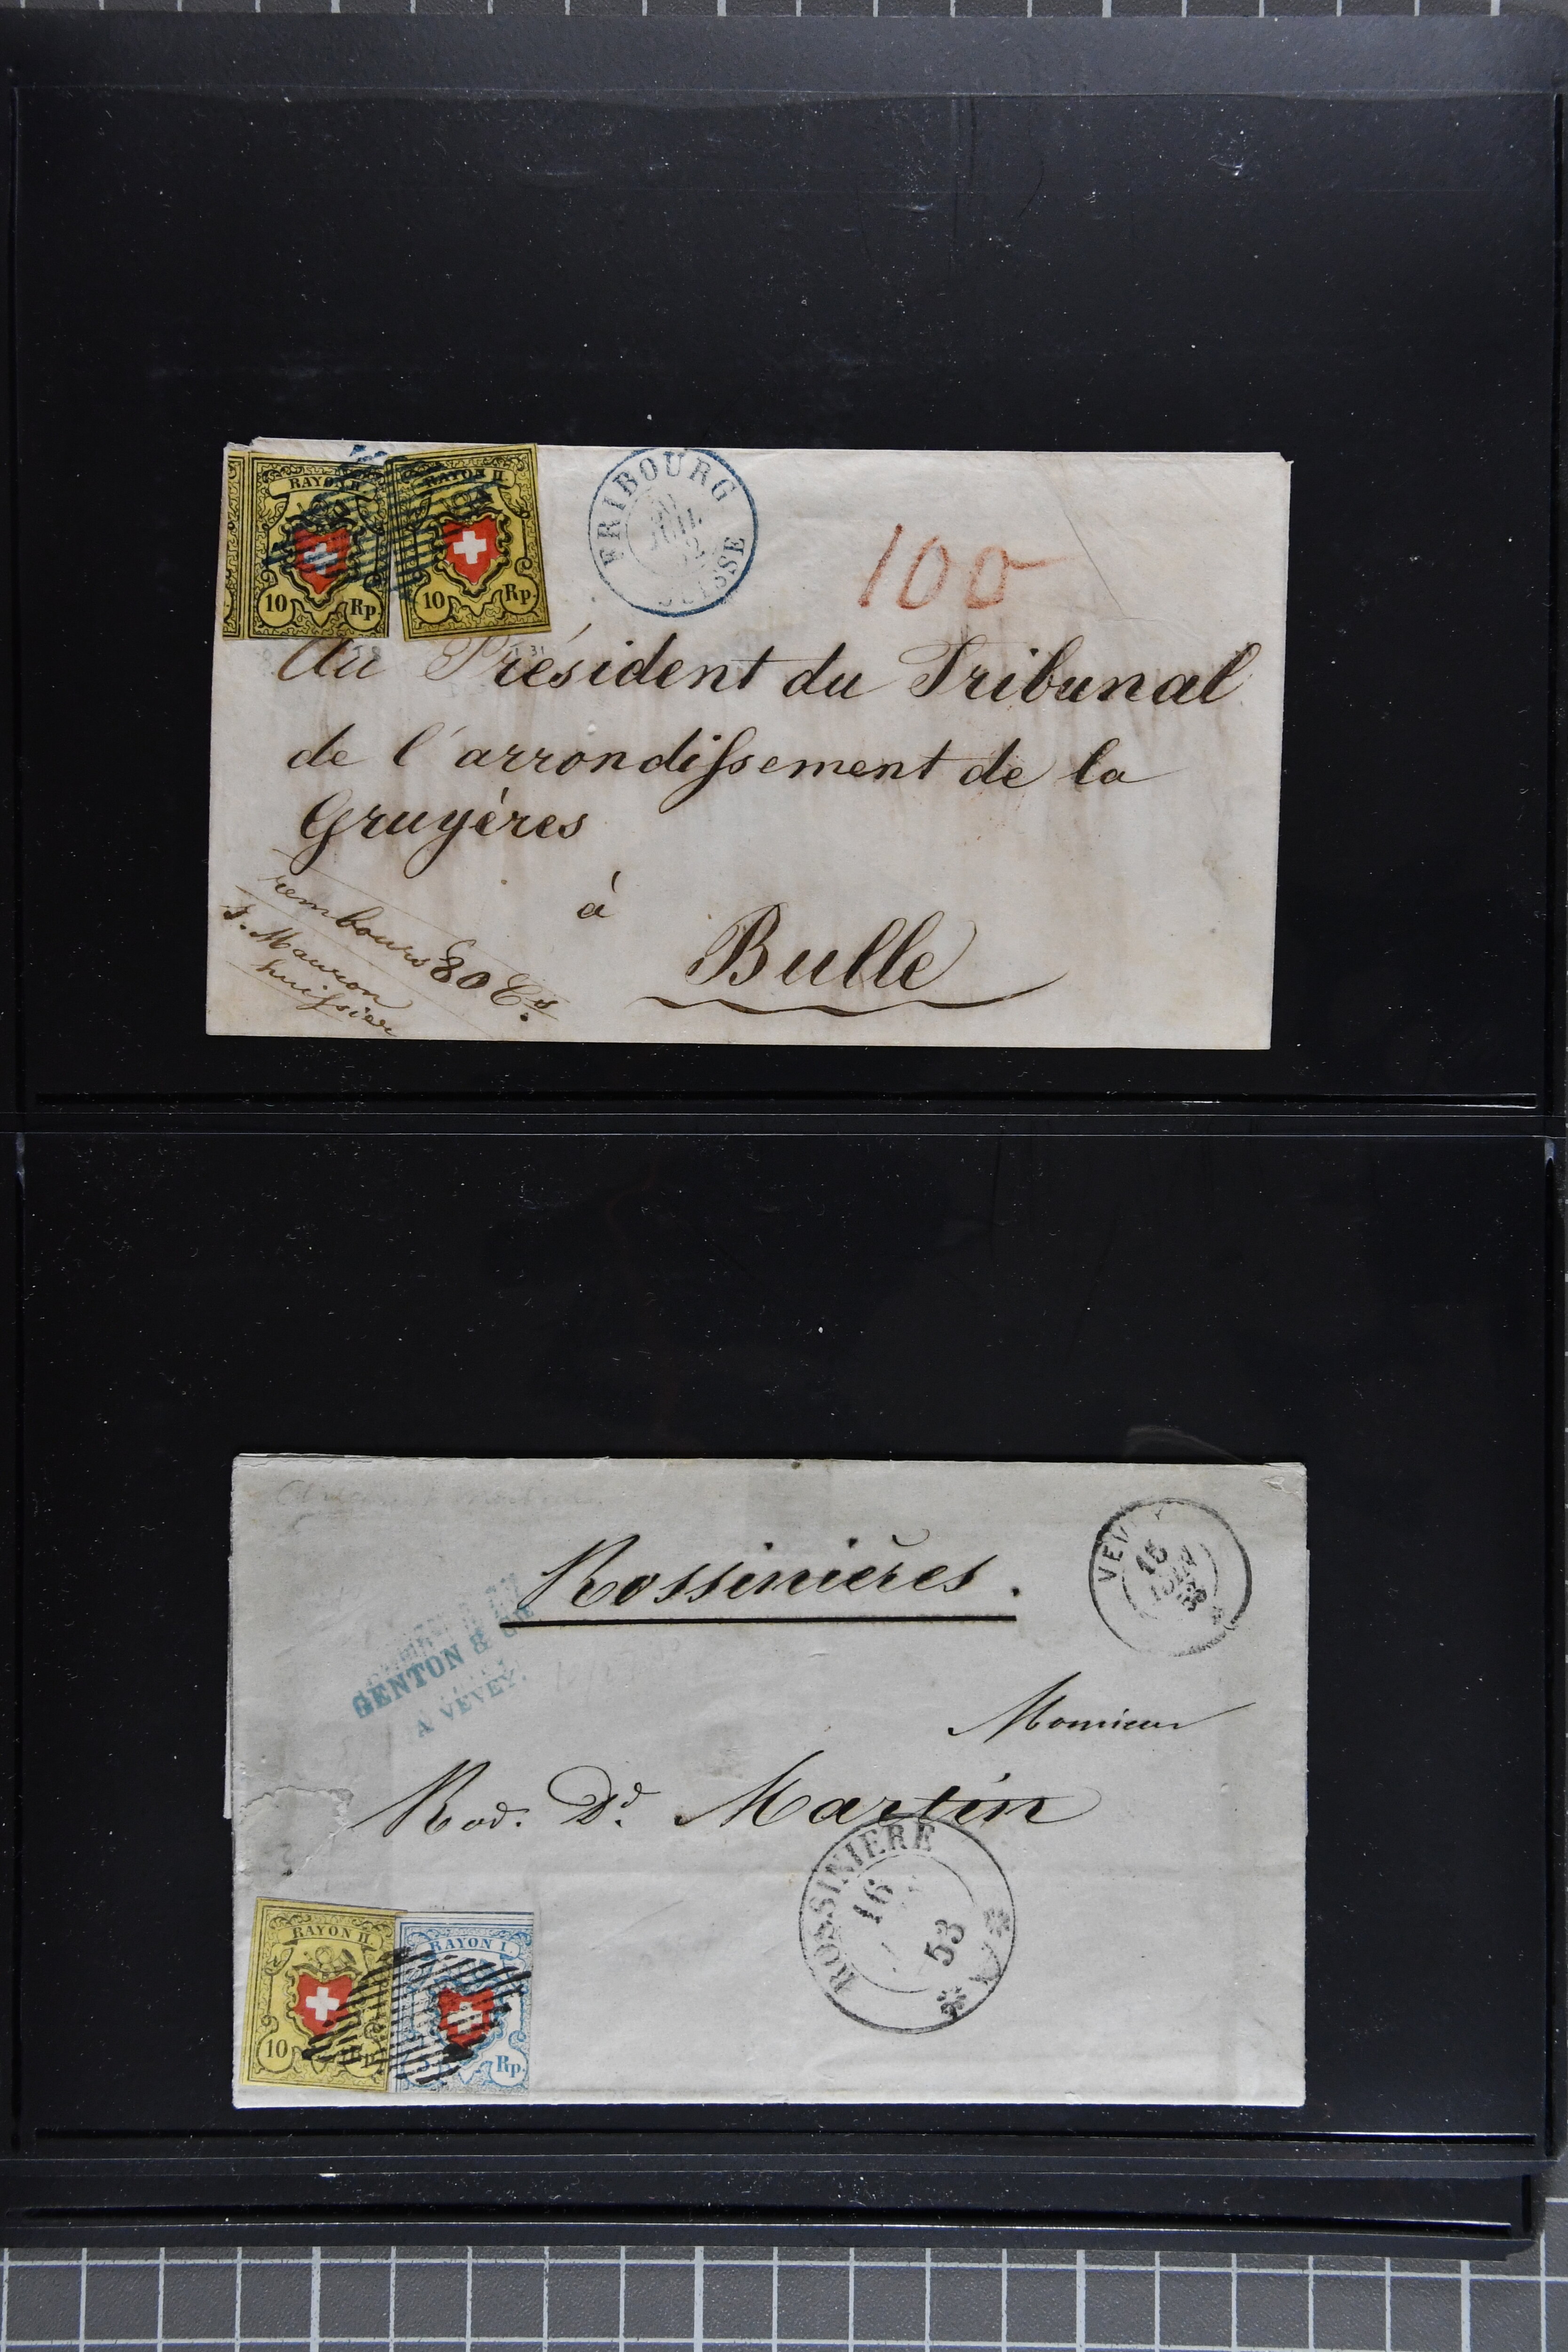 RAYON II.
10 Rp.
RAYON II.
10 Rp.
FRIBOURG
SUISSE
100
Au Président du Tribunal
de l'arrondissement de la
Gruyères
à
Bulle
rembours 80 Cs.
s. Mauron
huissier
Rossinières.
VEVEY
15
53
GENTON & Cie
A VEVEY.
Monsieur
Rod. Dd. Martin
ROSSINIERE
16
53
RAYON II.
10 Rp.
RAYON I.
5 Rp.